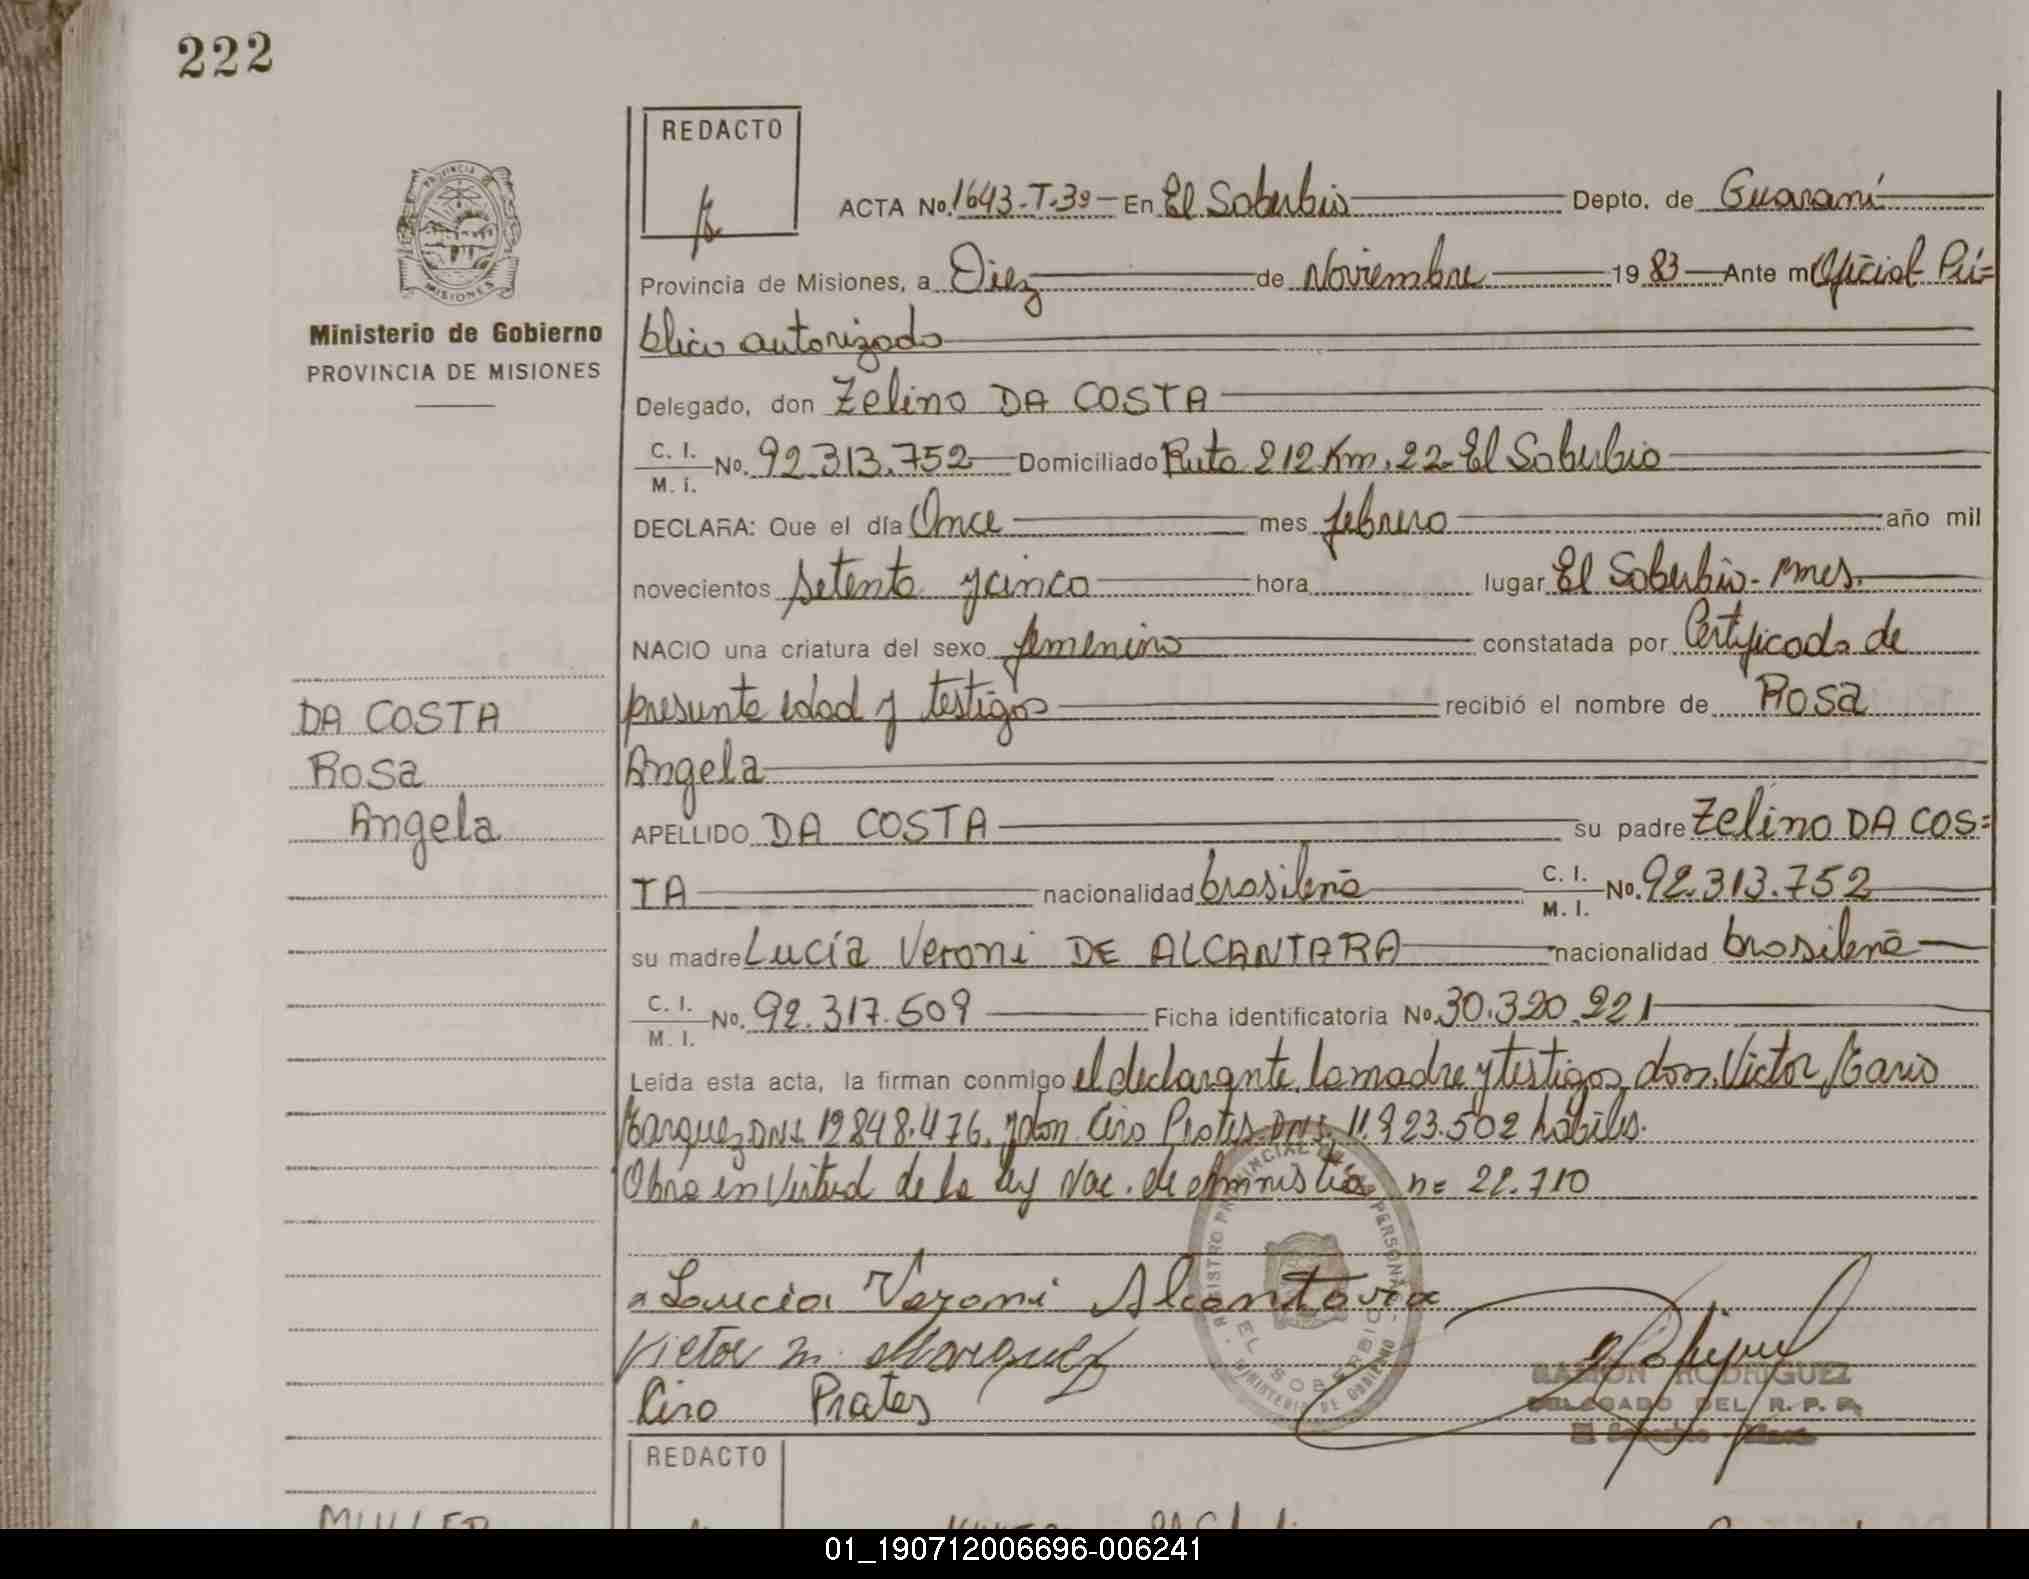 222
REDACTO
ACTA No. 1643-T-3º- En El Soberbio Depto. de Guaraní
Provincia de Misiones, a Diez de Noviembre 19 83 Ante mi Oficial Pú=
blico autorizado
Delegado, don Zelino DA COSTA
C. I.
M. I. No. 92.313.752 Domiciliado Ruta 212 Km. 22- El Soberbio
DECLARA: Que el día Once mes febrero año mil
novecientos setenta y cinco hora lugar El Soberbio- Mnes.
NACIO una criatura del sexo femenino constatada por Certificado de
presunta edad y testigos recibió el nombre de Rosa
Angela
APELLIDO DA COSTA su padre Zelino DA COS=
TA nacionalidad brasileña C. I.
M. I. No. 92.313.752
su madre Lucía Veroni DE ALCANTARA nacionalidad brasileña
C. I.
M. I. No. 92.317.509 Ficha identificatoria No. 30.320.221
Leída esta acta, la firman conmigo el declarante, la madre y testigos don Victor Mario
Marquez DNI. 12848.476, y don Ciro Prates DNI. 11.923.502 hábiles.
Obra en Virtud de la ley Nac. de Amnistía nº 22.710
Lucia Veroni Alcantara
Victor M. Marquez
Ciro Prates
RAMON RODRIGUEZ
DELEGADO DEL R. P. P.
REGISTRO PROVINCIAL DE LAS PERSONAS
EL SOBERBIO
MINISTERIO DE GOBIERNO
PROVINCIA DE
MISIONES
Ministerio de Gobierno
PROVINCIA DE MISIONES
DA COSTA
Rosa
Angela
REDACTO
MULLER
01_190712006696-006241